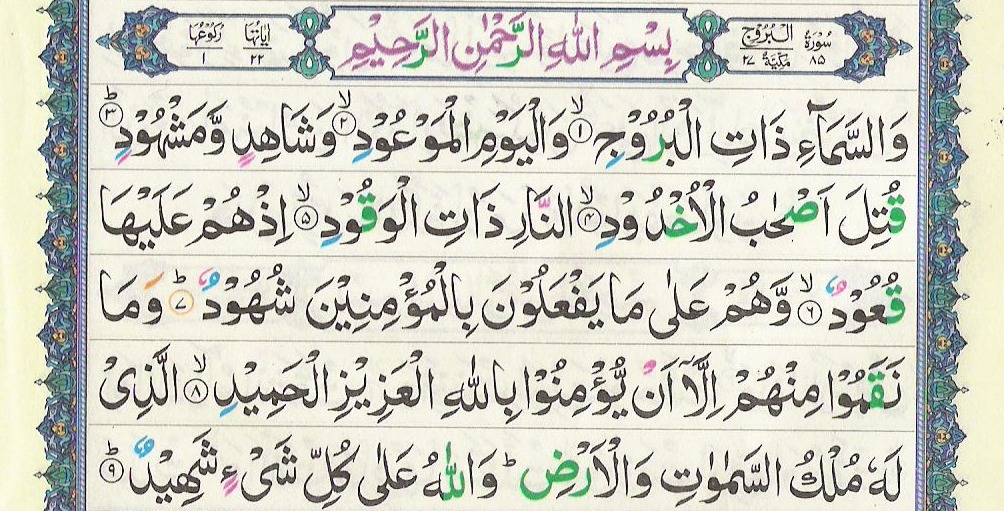 سُوْرَةُ ٨٥ الْبُرُوْجِ مَكِّيَّةٌ ٢٧
بِسْمِ اللّٰهِ الرَّحْمٰنِ الرَّحِيْمِ
اٰيَاتُهَا ٢٢ رُكُوْعُهَا ١
وَالسَّمَآءِ ذَاتِ الْبُرُوْجِ ۙ﴿١﴾ وَالْيَوْمِ الْمَوْعُوْدِ ۙ﴿٢﴾ وَشَاهِدٍ وَّمَشْهُوْدٍ ؕ﴿٣﴾
قُتِلَ اَصْحٰبُ الْاُخْدُوْدِ ۙ﴿٤﴾ النَّارِ ذَاتِ الْوَقُوْدِ ۙ﴿٥﴾ اِذْ هُمْ عَلَيْهَا
قُعُوْدٌ ۙ﴿٦﴾ وَّهُمْ عَلٰى مَا يَفْعَلُوْنَ بِالْمُؤْمِنِيْنَ شُهُوْدٌ ؕ﴿٧﴾ وَمَا
نَقَمُوْا مِنْهُمْ اِلَّاۤ اَنْ يُّؤْمِنُوْا بِاللّٰهِ الْعَزِيْزِ الْحَمِيْدِ ۙ﴿٨﴾ الَّذِىْ
لَهٗ مُلْكُ السَّمٰوٰتِ وَالْاَرْضِ ؕ وَاللّٰهُ عَلٰى كُلِّ شَىْءٍ شَهِيْدٌ ؕ﴿٩﴾